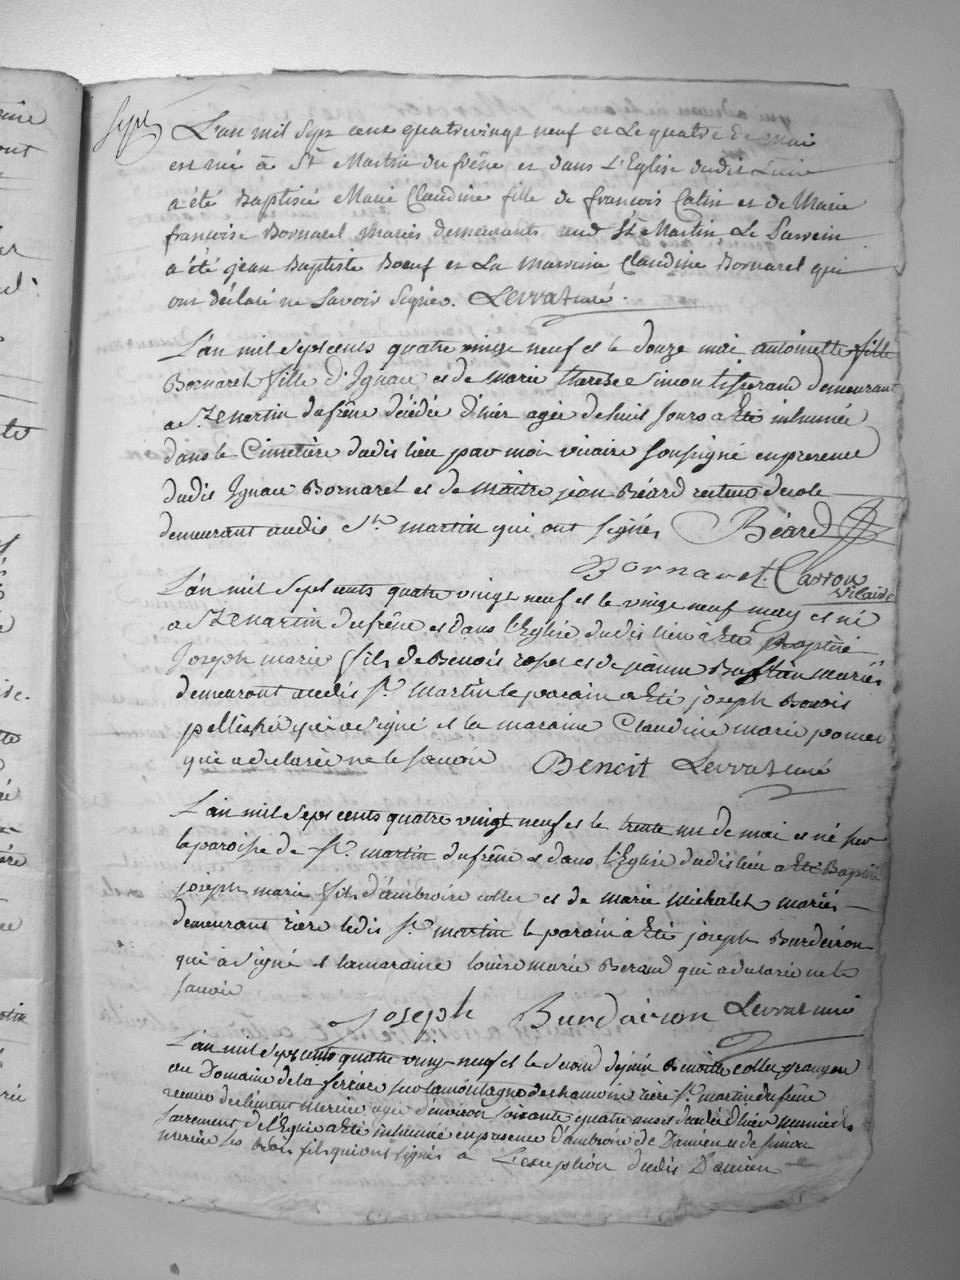 Sept
L'an mil sept cent quatrevingt neuf et Le quatre de mai
est né à St Martin du frêne et dans L'Eglise dudit Lieu
a été Baptisée Marie Claudine fille de francois Catin et de Marie
francoise Bornarel Mariés demeurants audt St Martin Le Parrein
a été jean Baptiste Boeuf et La Marreine Claudine Bornarel qui
ont déclaré ne Savoir Signer. Levrat curé.
L'an mil Sept cents quatre vingt neuf et le douze mai antoinette fille
Bornarel fille d'Ignace et de marie therese Simon tisserand demeurant
a St martin du frêne décédée d'hier agée de huit jours a Eté inhumée
dans le Cimetière dudit lieu par moi vicaire soussigné en presence
dudit Ignace Bornarel et de maitre jean Béard recteur decole
demeurant audit St. martin qui ont signés Béard
Bornaret. Carron
vicaire
L'an mil Sept cents quatre vingt neuf et le vingt neuf may est né
a St martin du frêne et dans l'Eglise dudit lieu a Eté Baptisé
Joseph marie fils de Benoit et de jeanne mariés
demeurant audit St. martin le parain a Eté joseph Benoit
qui a signé et la maraine Claudine marie
qui a declarée ne le savoir Benoit Levrat curé
L'an mil Sept cents quatre vingt neuf et le trente un de mai est né sur
la paroisse de St. martin du frêne et dans l'Eglise dudit lieu a Eté Baptisé
joseph marie fils d'ambroise collet et de marie michalet mariés
demeurant rière ledit St. martin le parain a Eté joseph Burdeiron
qui a signé et la maraine louise marie Beraud qui a declarée ne le
savoir
Joseph Burdairon Levrat curé
L'an mil Sept cents quatre vingt neuf et le second de juin Benoitte collet grangere
au Domaine de la ferriere sur la montagne de chamoise rière St. martin du frêne
veuve de clément mercier agée d'environ soixante quatre ans et décédée d'hier munie des
sacrements de l'Eglise a Eté inhumée en presence d'ambroise de Damien et de simon
mercier ses trois fils qui ont signés a L'exception dudit Damien